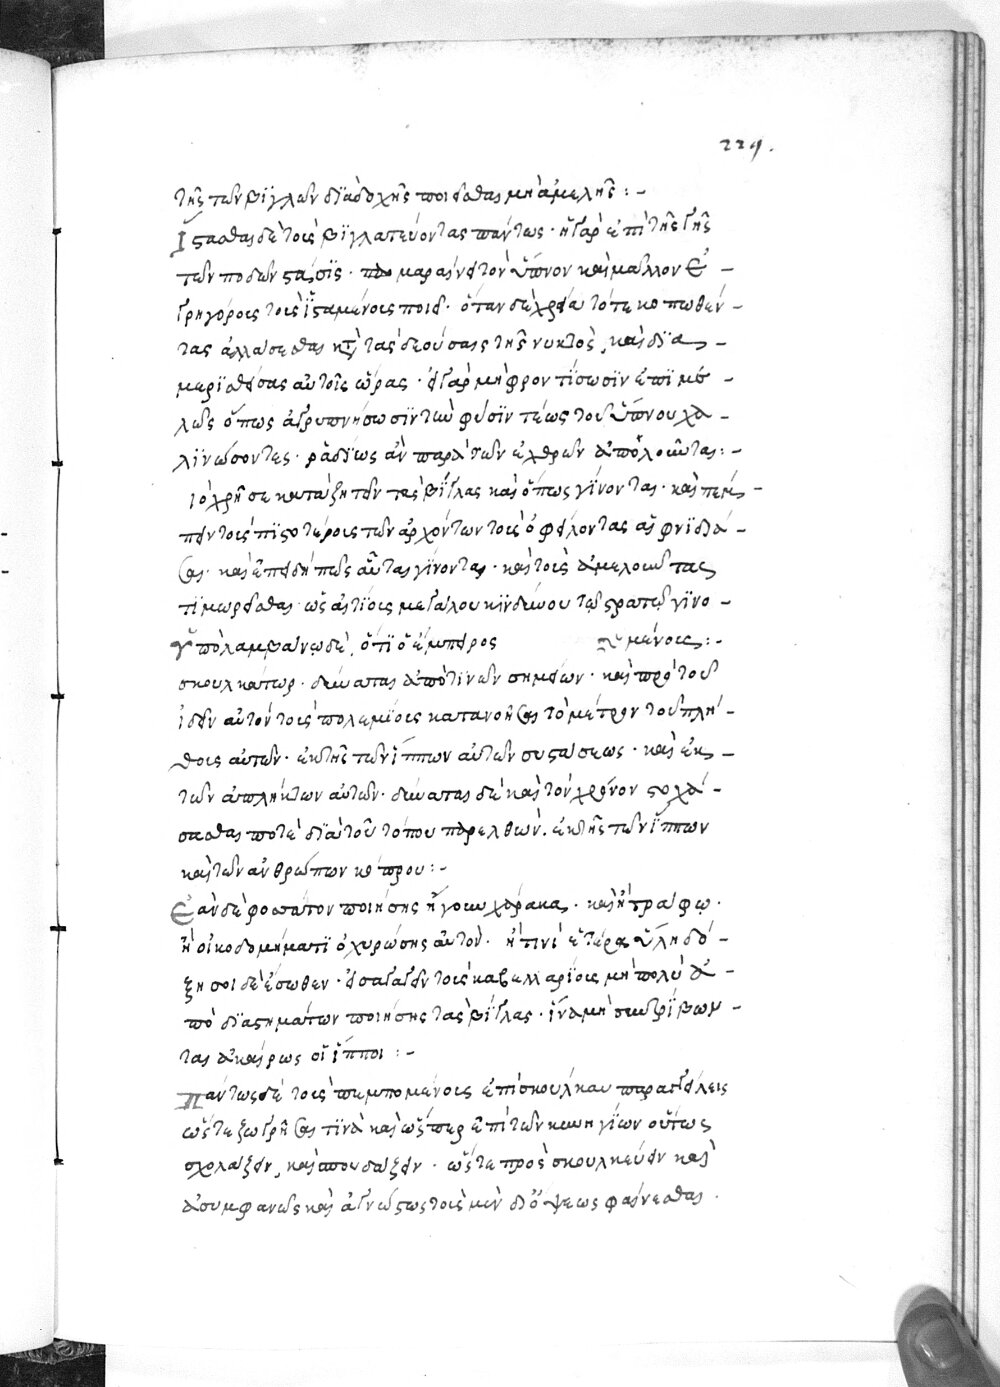 229.
τῆς τῶν βιγλῶν διαδοχῆς ποιεῖσθαι μὴ ἀμελῆς : -
Ἵστασθαι δὲ τοὺς βιγλατεύοντας πάντως · ἡ γὰρ ἐπὶ τῆς γῆς
τῶν ποδῶν στάσις · παραμαραίνει τὸν ὕπνον καὶ μᾶλλον ἐ -
γρηγόρους τοὺς ἱσταμένους ποιεῖ · ὅταν δὲ χρεία τότε κοπωθέν -
τας ἀλλάσσεσθαι κατὰ τὰς δεούσας τῆς νυκτὸς, καὶ δια -
μερισθείσας αὐτοῖς ὥρας · εἰ γὰρ μὴ φροντίσωσιν ἐπιμε -
λῶς ὅπως ἀγρυπνήσωσιν τὴν φύσιν τέως τοῦ ὕπνου χα -
λινώσοντες · ῥαδίως ἂν παρὰ τῶν ἐχθρῶν ἀπολοῦνται : -
χρή σε κατάξητον τὰς βίγλας καὶ ὅπως γίνονται · καὶ πέμ -
πειν τοὺς πιστοτέρους τῶν ἀρχόντων τοὺς ὀφείλοντας αἰφνιδιά -
σαι · καὶ ἐπιδεῖν πῶς αὗται γίνονται · καὶ τοὺς ἀμελοῦντας
τιμωρεῖσθαι · ὡς αἰτίους μεγάλου κινδύνου τῷ στρατῷ γινο -
Ὑπολαμβάνω δέ, ὅτι ὁ ἔμπειρος μένους : -
σκουλκάτωρ · δύναται ἀπὸ τινῶν σημείων · καὶ πρὸ τοῦ
ἰδεῖν αὐτὸν τοὺς πολεμίους κατανοῆσαι τὸ μέτρον τοῦ πλή -
θους αὐτῶν · ἐκ τῆς τῶν ἵππων αὐτῶν συστάσεως · καὶ ἐκ -
τῶν ἀπλήκτων αὐτῶν · δύναται δὲ καὶ τὸν χρόνον στοχά -
σασθαι πότε διὰ τοῦ τόπου παρελθών · ἐκ τῆς τῶν ἵππων
καὶ τῶν ἀνθρώπων κόπρου : -
Ἐὰν δὲ φοσσάτον ποιήσης ἤγουν χάρακα · καὶ ἢ τράφω ·
ἢ οἰκοδομήματι ὀχυρώσης αὐτὸν · ἤ τινι ἑτέρα ὕλη δό -
ξη σοι δὲ ἔσωθεν · εἰσαγαγεῖν τοὺς καβελλαρίους μὴ πολὺ ἀ -
πὸ διαστημάτων ποιήσης τὰς βίγλας · ἵνα μὴ συντρίβων -
ται ἀκαίρως οἱ ἵπποι : -
Πάντως δὲ τοὺς πεμπομένους ἐπὶ σκοῦλκαν παραγγείλεις
ὥστε ζωγρῆσαι τινὰ καὶ ὥσπερ ἐπὶ τῶν κυνηγίων οὕτως
σχολάζειν, καὶ σπουδάζειν · ὥστε πρὸς σκουλκεύειν καὶ
ἀσυμφανῶς καὶ ἀγνώστως τοὺς μὲν δι' ὄψεως φαίνεσθαι ·